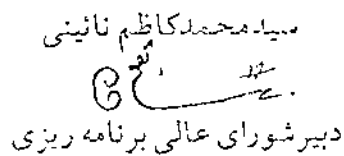 سیدمحمدکاظم نائینی
دبیرشورای عالی برنامه ریزی